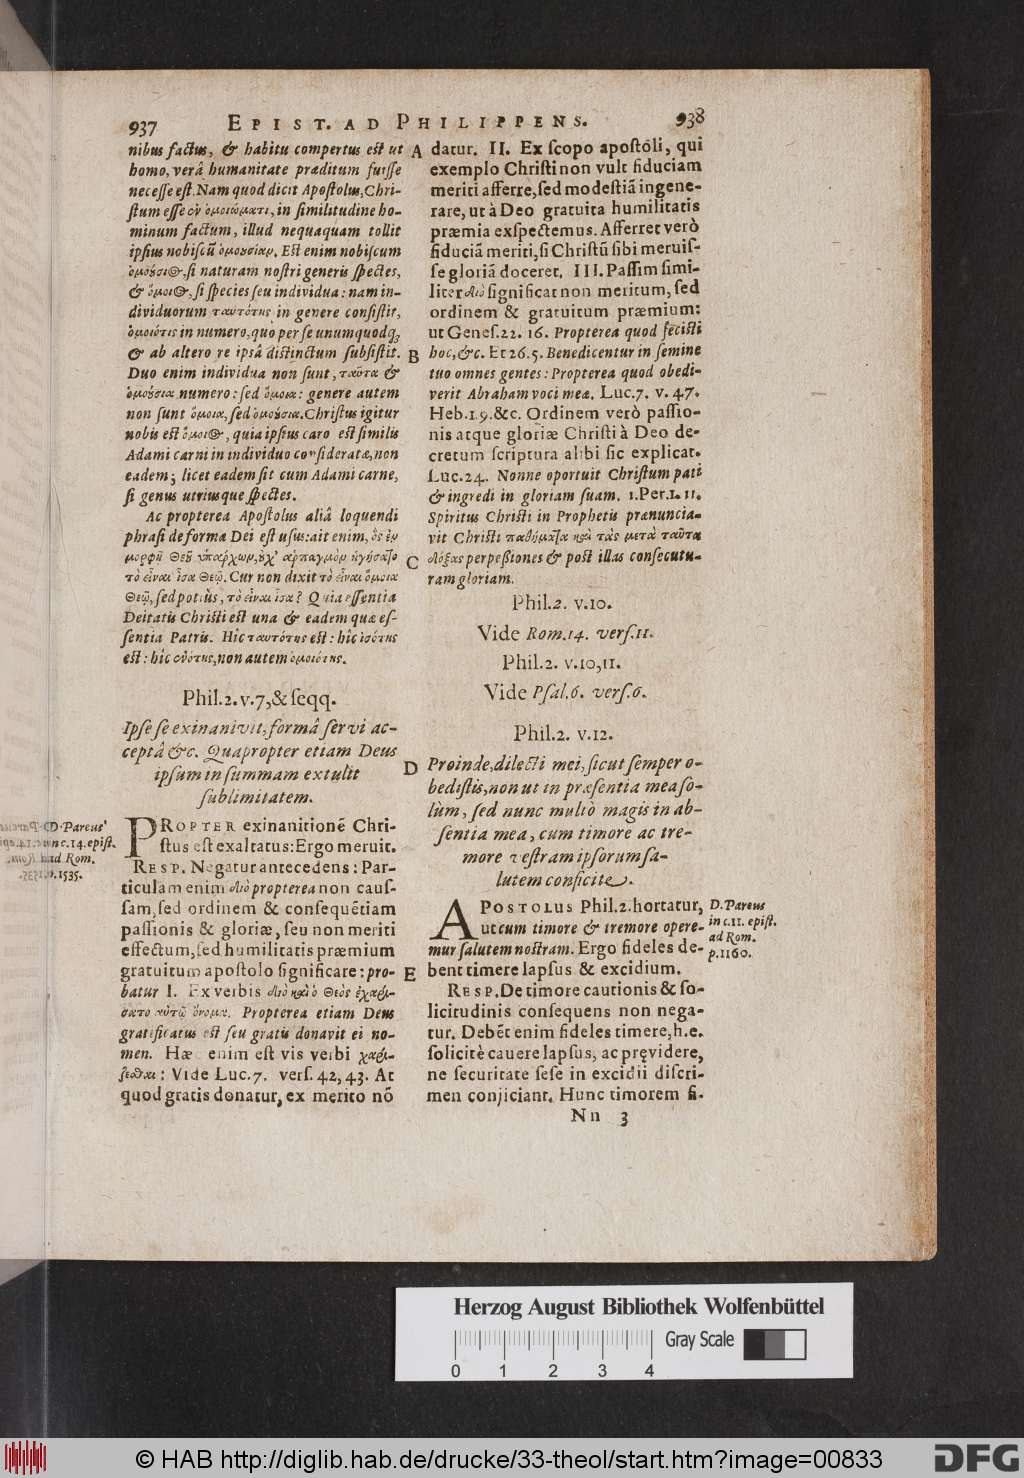 937 EPIST. AD PHILIPPENS. 938
nibus factus, & habitu compertus est ut
homo, verâ humanitate præditum fuisse
necesse est. Nam quod dicit Apostolus, Chri-
stum esse ἐν ὁμοιώματι, in similitudine ho-
minum factum, illud nequaquam tollit
ipsius nobiscũ ὁμουσίαν. Est enim nobiscum
ὁμούσιος, si naturam nostri generis spectes,
& ὅμοιος, si species seu individua: nam in-
dividuorum ταυτότης in genere consistit,
ὁμοιότις in numero, quo per se unumquodq;
& ab altero re ipsâ distinctum subsistit.
Duo enim individua non sunt, ταῦτα &
ὁμούσια numero: sed ὅμοια: genere autem
non sunt ὅμοια, sed ὁμούσια. Christus igitur
nobis est ὅμοιος, quia ipsius caro est similis
Adami carni in individuo consideratæ, non
eadem; licet eadem sit cum Adami carne,
si genus utriusque spectes.
Ac propterea Apostolus aliâ loquendi
phrasi de forma Dei est usus: ait enim, ὃς ἐν
μορφῇ Θεοῦ ὑπάρχων, οὐχ' ἁρπαγμὸν ἡγήσατο
τὸ εἶναι ἶσα Θεῷ. Cur non dixit τὸ εἶναι ὅμοια
Θεῷ, sed potiùs, τὸ εἶναι ἶσα? Quia essentia
Deitatis Christi est una & eadem quæ es-
sentia Patris. Hîc ταυτότης est: hîc ἰσότης
est: hîc ἑνότης, non autem ὁμοιότης.
Phil.2.v.7,& seqq.
Ipse se exinanivit, formâ servi ac-
ceptâ &c. Quapropter etiam Deus
ipsum in summam extulit
sublimitatem.
D. Pareus
in c.14. epist.
ad Rom.
p.1535.
PROPTER exinanitionẽ Chri-
stus est exaltatus: Ergo meruit.
RESP. Negatur antecedens: Par-
ticulam enim διὸ propterea non caus-
sam, sed ordinem & consequẽtiam
passionis & gloriæ, seu non meriti
effectum, sed humilitatis præmium
gratuitum apostolo significare: pro-
batur I. Ex verbis διὸ καὶ ὁ Θεὸς ἐχαρί-
σατο αὐτῷ ὄνομα. Propterea etiam Deus
gratificatus est seu gratis donavit ei no-
men. Hæc enim est vis verbi χαρί-
ζεσθαι: Vide Luc.7. vers. 42, 43. At
quod gratis donatur, ex merito nõ
A
B
C
D
E
datur. II. Ex scopo apostoli, qui
exemplo Christi non vult fiduciam
meriti afferre, sed modestiã ingene-
rare, ut à Deo gratuita humilitatis
præmia exspectemus. Afferret verò
fiduciã meriti, si Christũ sibi meruis-
se gloriã doceret. III. Passim simi-
liter διὸ significat non meritum, sed
ordinem & gratuitum præmium:
ut Genes.22. 16. Propterea quod fecisti
hoc, &c. Et 26.5. Benedicentur in semine
tuo omnes gentes: Propterea quod obedi-
verit Abraham voci meæ. Luc.7. v. 47.
Heb.1.9.&c. Ordinem verò passio-
nis atque gloriæ Christi à Deo de-
cretum scriptura alibi sic explicat.
Luc.24. Nonne oportuit Christum pati
& ingredi in gloriam suam. 1.Pet.1.11.
Spiritus Christi in Prophetis prænuncia-
vit Christi παθήματα καὶ τὰς μετὰ ταῦτα
δόξας perpessiones & post illas consecutu-
ram gloriam.
Phil.2. v.10.
Vide Rom.14. vers.11.
Phil.2. v.10,11.
Vide Psal.6. vers.6.
Phil.2. v.12.
Proinde, dilecti mei, sicut semper o-
bedistis, non ut in præsentia mea so-
lùm, sed nunc multò magis in ab-
sentia mea, cum timore ac tre-
more vestram ipsorum sa-
lutem conficite.
APOSTOLUS Phil.2. hortatur,
ut cum timore & tremore opere-
mur salutem nostram. Ergo fideles de-
bent timere lapsus & excidium.
D. Pareus
in c.11. epist.
ad Rom.
p.1160.
RESP. De timore cautionis & so-
licitudinis consequens non nega-
tur. Debẽt enim fideles timere, h.e.
solicitè cavere lapsus, ac pręvidere,
ne securitate sese in excidii discri-
men conjiciant. Hunc timorem fi-
Nn 3
Herzog August Bibliothek Wolfenbüttel
Gray Scale
0 1 2 3 4
© HAB http://diglib.hab.de/drucke/33-theol/start.htm?image=00833
DFG